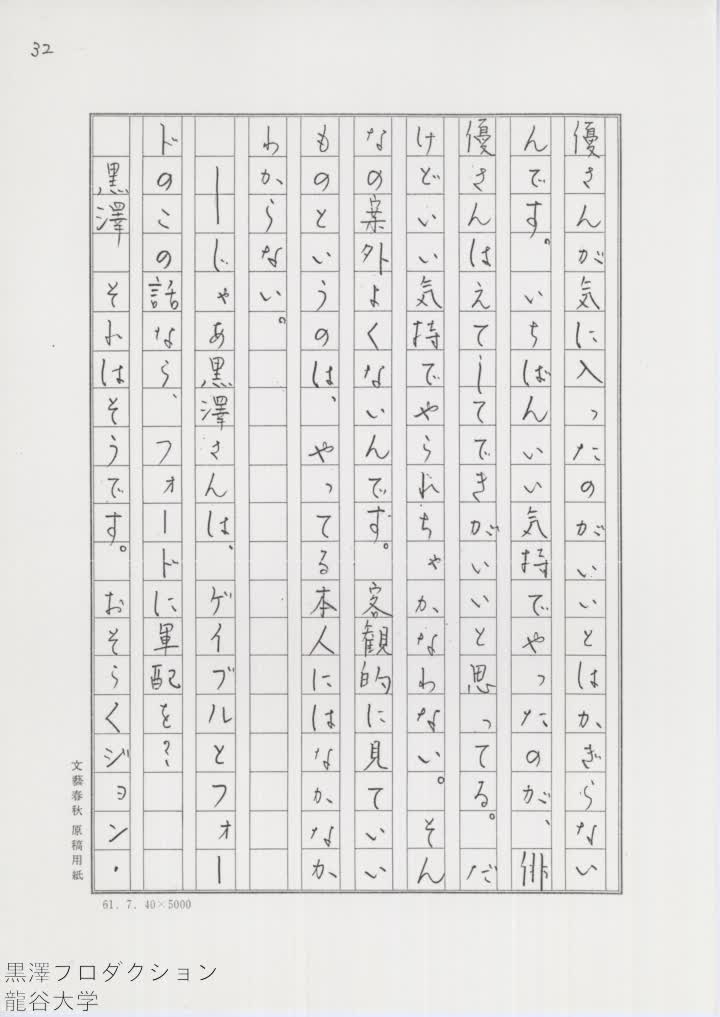 32
優さんが気に入ったのがいいとはかぎらない
んです。いちばんいい気持でやったのが、俳
優さんはえてしてできがいいと思ってる。だ
けどいい気持でやられちゃかなわない。そん
なの案外よくないんです。客観的に見ていい
ものというのは、やってる本人にはなかなか
わからない。
――じゃあ黒澤さんは、ゲイブルとフォー
ドのこの話なら、フォードに軍配を?
黒澤 それはそうです。おそらくジョン・
文藝春秋 原稿用紙
61. 7. 40×5000
黒澤プロダクション
龍谷大学